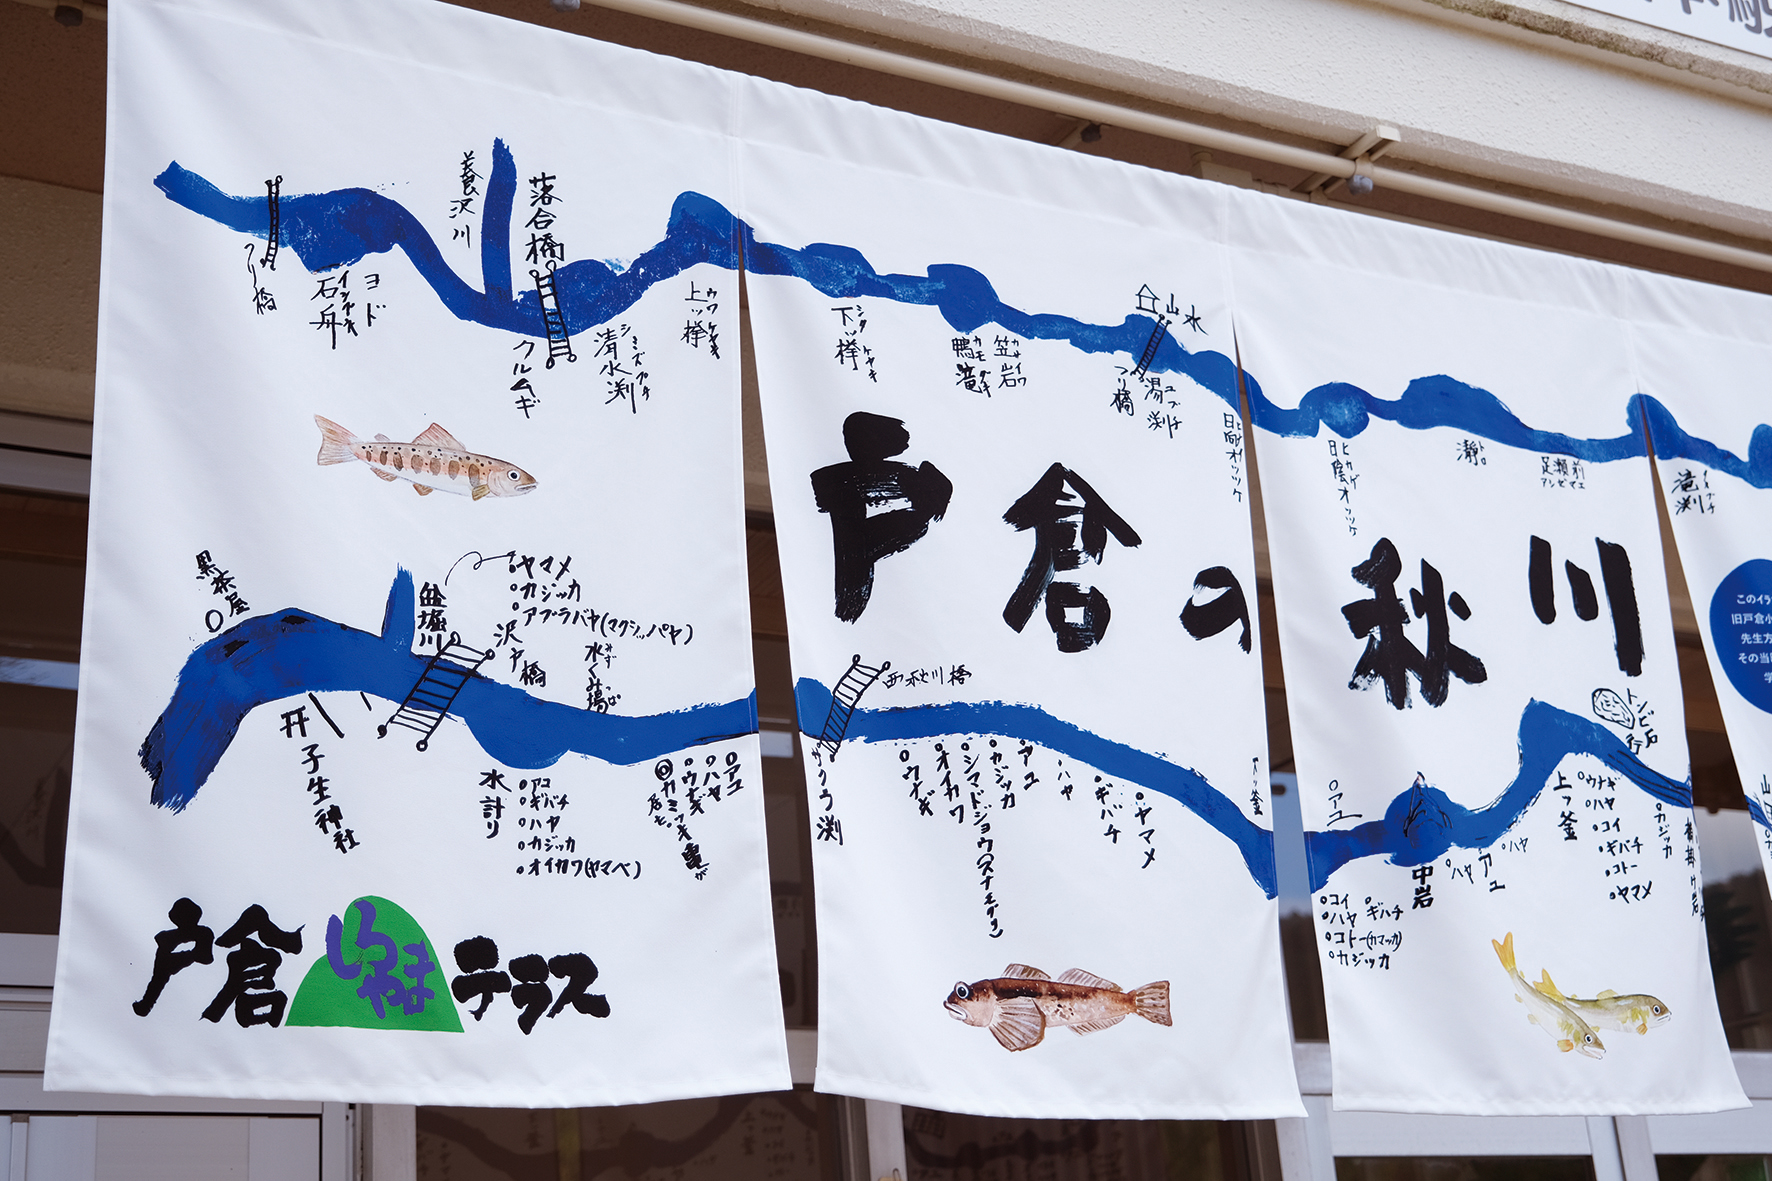 養沢川
落合橋
つり橋
石舟
イシブネ
ヨド
クルムギ
清水渕
シミズブチ
上ッ欅
ウワケヤキ
下ッ欅
シタケヤキ
鴨滝
カモダキ
笠岩
カサイワ
山水
つり橋
湯渕
ユブチ
日向オッツケ
日陰オッツケ
ヒカゲ
瀞
トロ
足瀬前
アシセマエ
滝渕
戸倉の秋川
黒茶屋
盆堀川
ヤマメ
カジッカ
アブラバヤ(マクシッパヤ)
沢戸橋
水くみ場
みず
ば
子生神社
水計り
アユ
ギバチ
ハヤ
カジッカ
オイカワ(ヤマベ)
アユ
ハヤ
ウナギ
カミツキ亀が
居た。
西秋川橋
サクラ渕
ウナギ
オイカワ
シマドジョウ(スナモグリ)
カジッカ
アユ
ハヤ
ギバチ
ヤマメ
下ッ釜
アユ
中岩
ハヤ
アユ
ハヤ
コイ
ハヤ
ギハチ
コトー(カマッカ)
カジッカ
上ッ釜
トンビ岩
ウナギ
ハヤ
コイ
ギバチ
コトー
ヤマメ
カジッカ
このイラ
旧戸倉小
先生方
その当
戸倉しろやまテラス